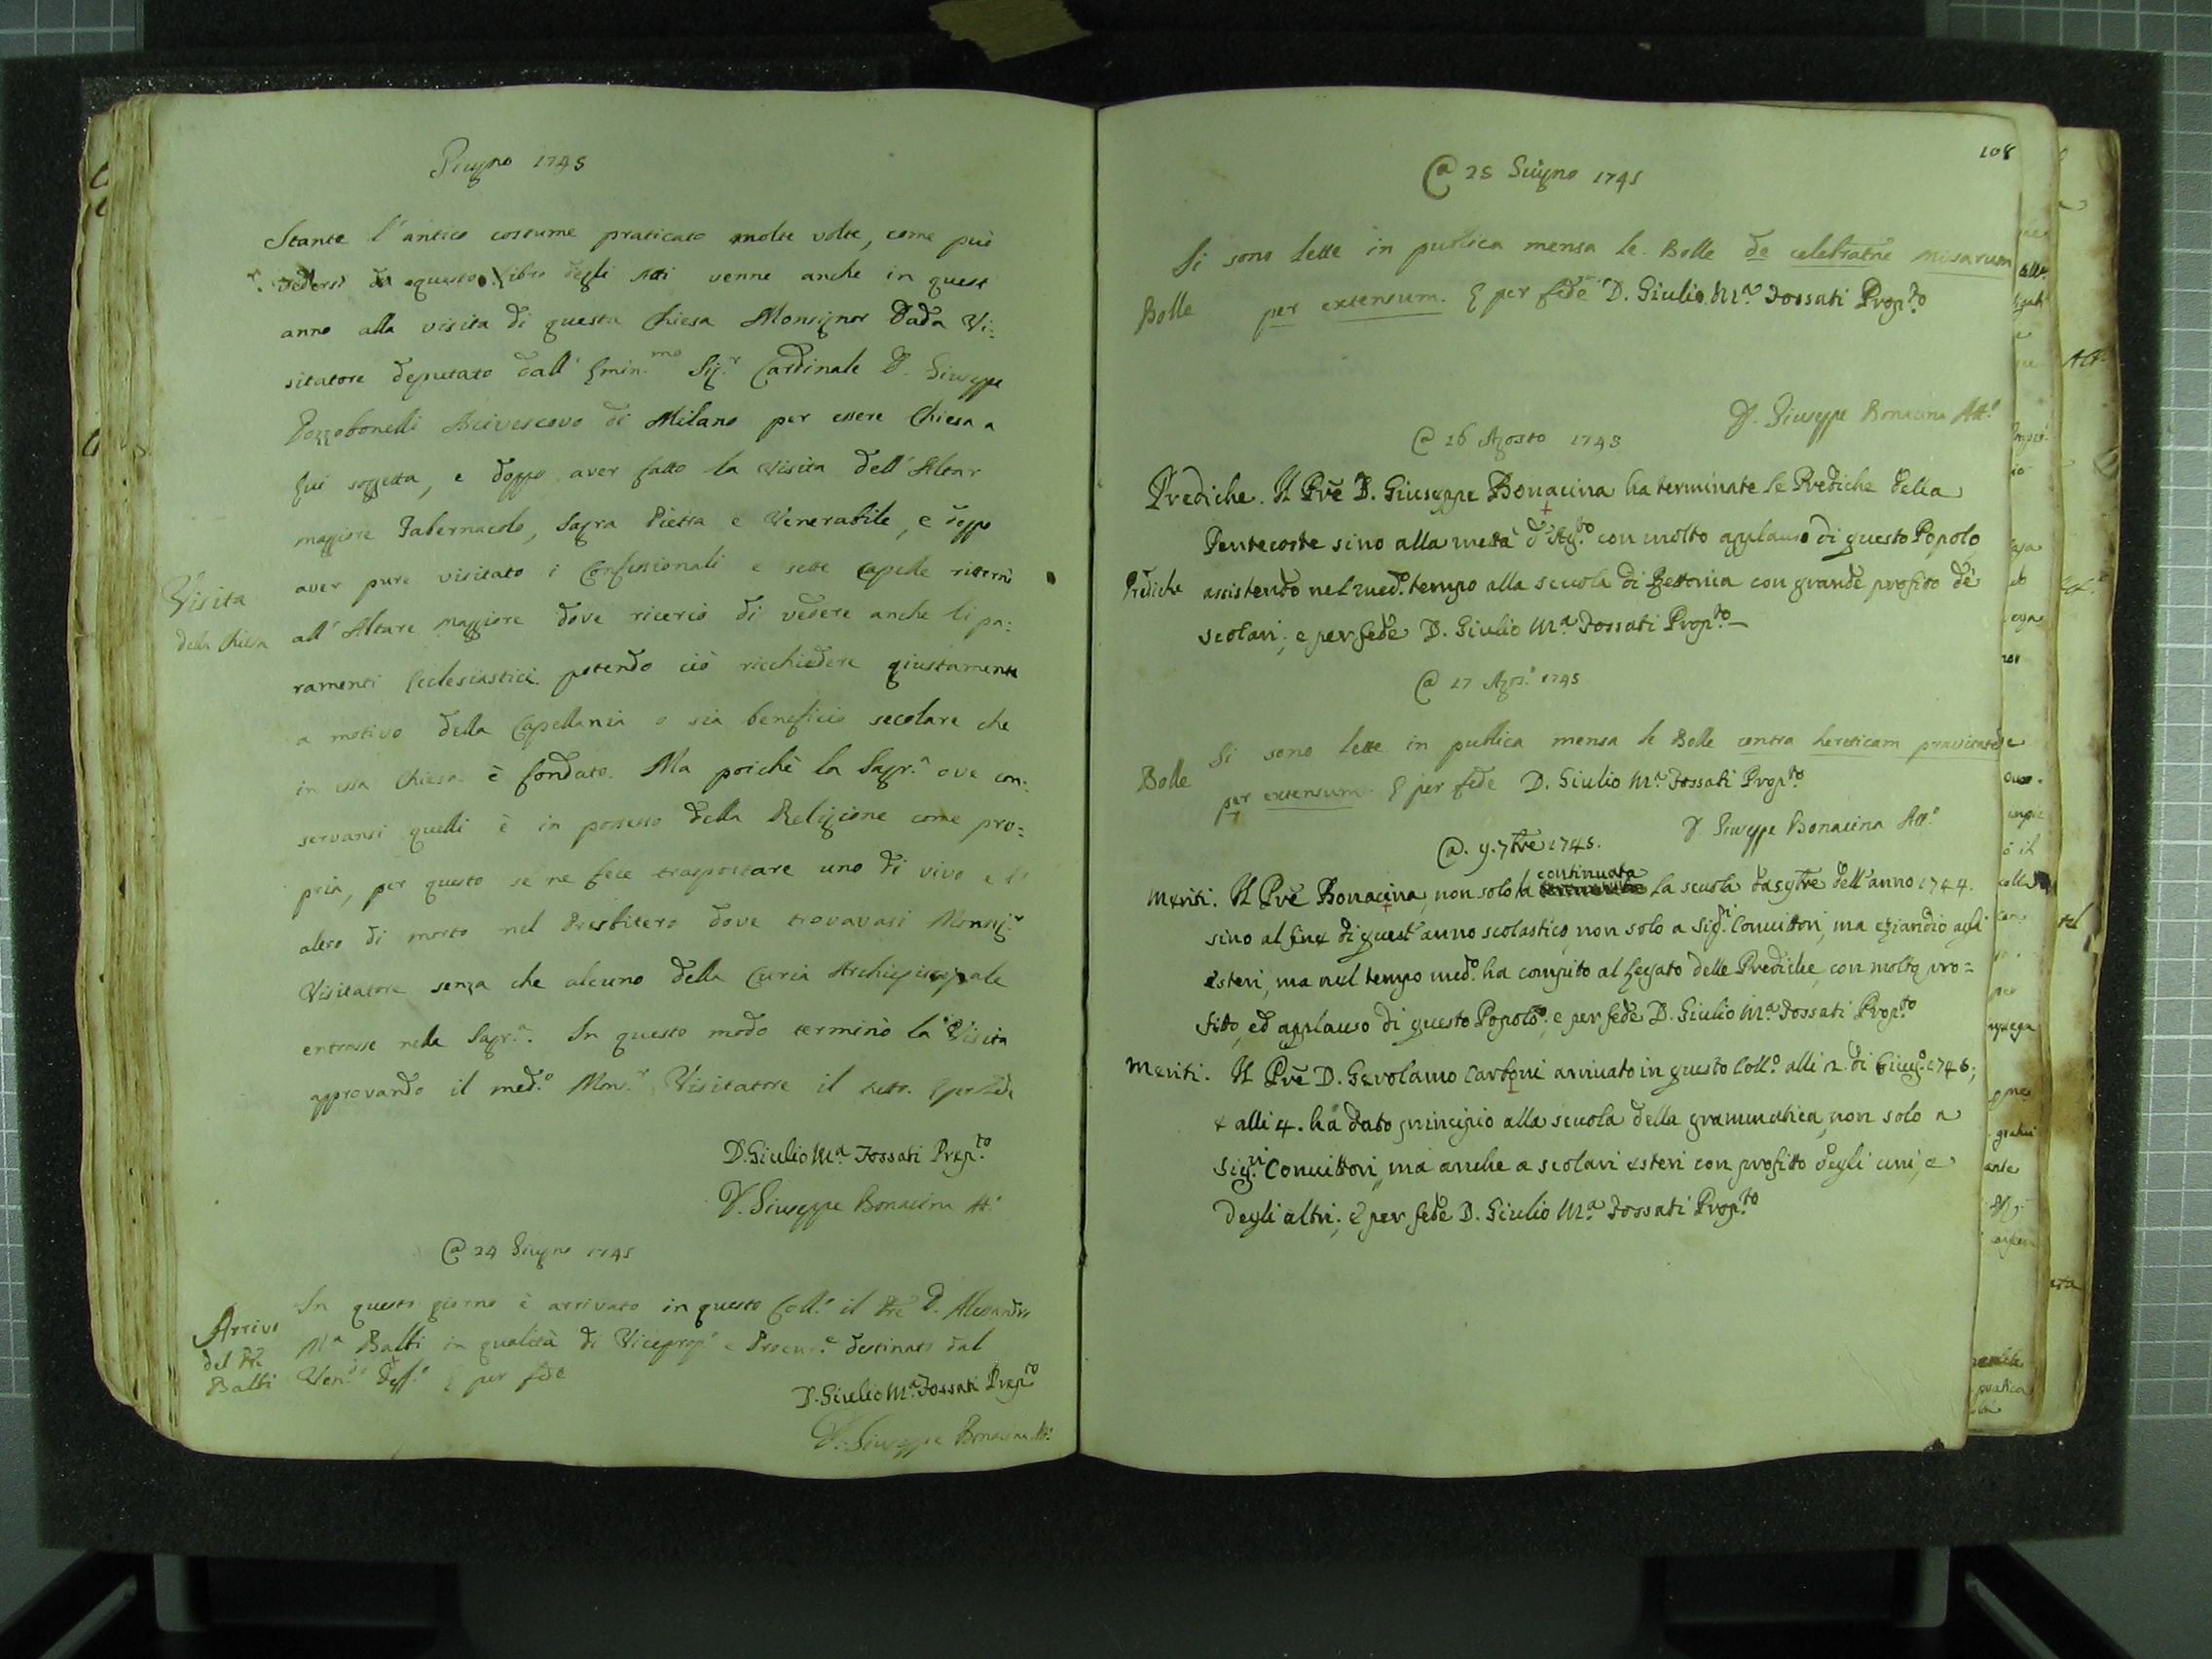 Giugno 1745
Stante l'antico costume praticato molte volte, come può
vedersi da questo Libro degli Atti venne anche in quest
anno alla visita di questa Chiesa Monsignor Dada Vi:
sitatore deputato dall' Emin.mo Sig.r Cardinale D. Giuseppe
Pozzobonelli Arcivescovo di Milano per essere Chiesa a
Lui soggetta, e doppo aver fatto la visita dell' Altar
maggiore Tabernacolo, Sagra Pietra e Venerabile, e doppo
aver pure visitato i Confessionali e sette Capelle ritornò
Visita
della Chiesa
all' Altare maggiore dove ricercò di vedere anche li pa:
ramenti Ecclesiastici potendo ciò ricchiedere giustamente
a motivo della Capellania o sia beneficio secolare che
in essa Chiesa è fondato. Ma poichè la Sagr.a ove con:
servansi quelli è in possesso della Religione come pro=
pria, per questo se ne fece trasportare uno di vivo e l'
altro di morto nel Presbitero dove trovavasi Monsig.r
Visitatore senza che alcuno della Curia Archiepiscopale
entrasse nella Sagr.a. In questo modo terminò la Visita
approvando il med.o Mon.r Visitatore il tutto. E per fede
D. Giulio M.a Fossati Prep.to
D. Giuseppe Bonacina Att.o
@ 24 Giugno 1745
In questo giorno è arrivato in questo Coll.o il Pre D. Alessandro
Arrivo
del Pre
Balbi
M.a Balbi in qualità di Viceprep.o e Procur.e destinato dal
Ven.do Deff.o E per fede
D. Giulio M.a Fossati Prep.to
D. Giuseppe Bonacina Att.o
108
@ 25 Giugno 1745
Si sono lette in publica mensa le Bolle de celebratne Misarum
Bolle
per extensum. E per fede D. Giulio M.a Fossati Prep.to
D. Giuseppe Bonacina Att.o
@ 16 Agosto 1745
Prediche. Il Pre D. Giuseppe Bonacina ha terminate le Prediche della
Pentecoste sino alla metà d'Ag.to con molto applauso di questo Popolo
Prediche
assistendo nel med.o tempo alla scuola di Rettorica con grande profito de'
scolari; e per fede D. Giulio M.a Fossati Prep.to
@ 17 Agos.o 1745
Si sono lette in publica mensa le Bolle contra hereticam pravitatem
Bolle
per extensum. E per fede D. Giulio M.a Fossati Prep.to
D Giuseppe Bonacina Att.o
@. 9. 7bre 1745.
Meriti. Il Pre Bonacina, non solo à continuata la scuola da 9bre dell'anno 1744.
sino al fine di quest'anno scolastico, non solo a Sig.ri Convittori, ma eziandio agli
esteri, ma nel tempo med.o ha compito al Legato delle Prediche, con molto pro=
fitto, ed applauso di questo Popolo; e per fede D. Giulio M.a Fossati Prep.to
Meriti. Il Pre D. Gerolamo Carboni arrivato in questo Coll.o alli 2. di Giug.o 1745;
e alli 4. ha dato principio alla scuola della grammatica, non solo a
Sig.ri Convittori, ma anche a scolari esteri con profitto degli uni, e
degli altri; e per fede D. Giulio M.a Fossati Prep.to